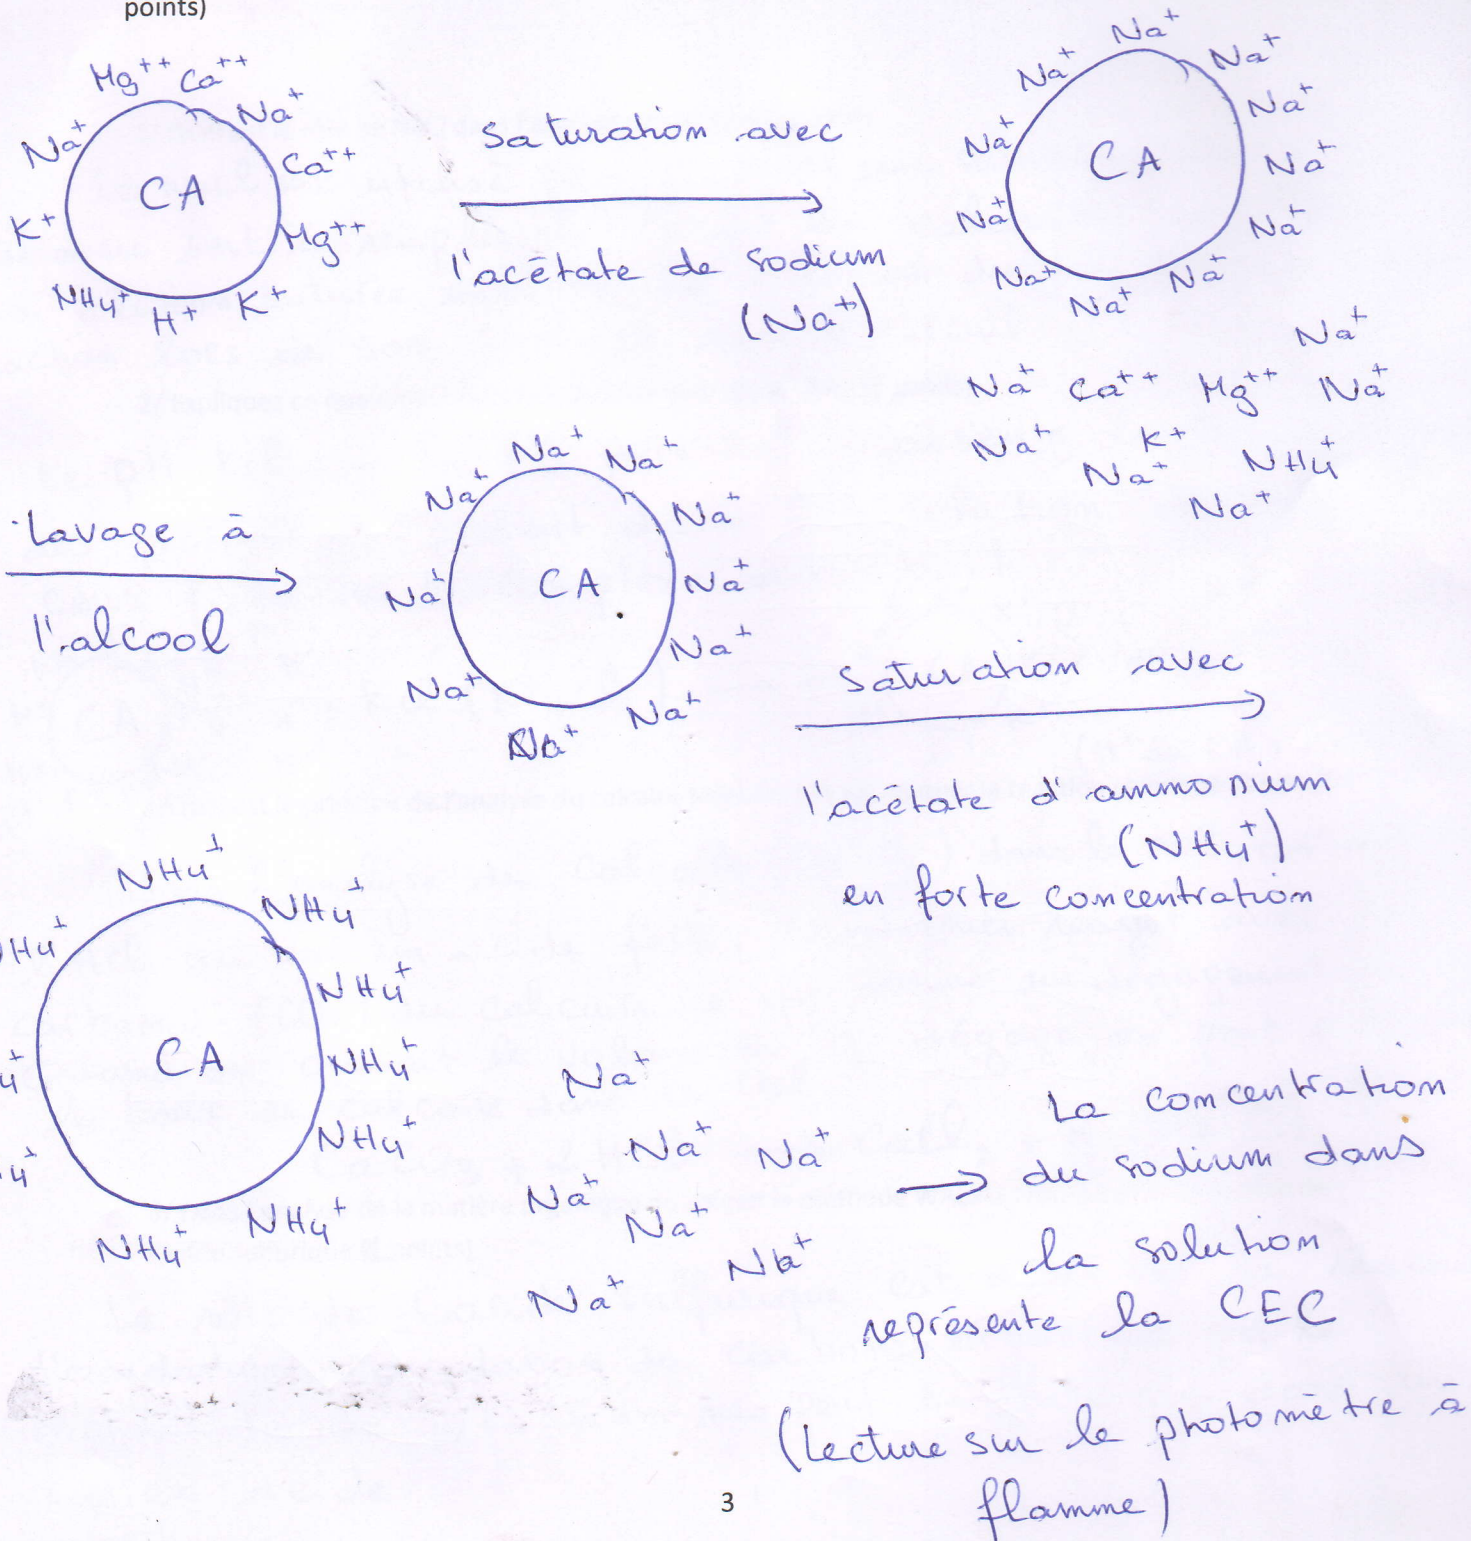 points)
Mg++ Ca++
Na+ Na+
CA Ca++
K+ Mg++
NH4+ H+ K+
Saturation avec
l'acétate de sodium
(Na+)
Na+
Na+ Na+
Na+
Na+ CA Na+
Na+ Na+
Na+ Na+ Na+
Na+
Na+ Ca++ Mg++ Na+
Na+ K+ NH4+
Na+
Na+
Lavage à
l'alcool
Na+ Na+
Na+ Na+
Na+ CA Na+
Na+ Na+
Na+ Na+
Saturation avec
l'acétate d'ammonium
(NH4+)
en forte concentration
NH4+
NH4+ NH4+
NH4+
CA NH4+
NH4+
NH4+ NH4+
Na+
Na+ Na+
Na+ Na+
Na+ Na+
La concentration
du sodium dans
la solution
représente la CEC
(Lecture sur le photomètre à
flamme)
3